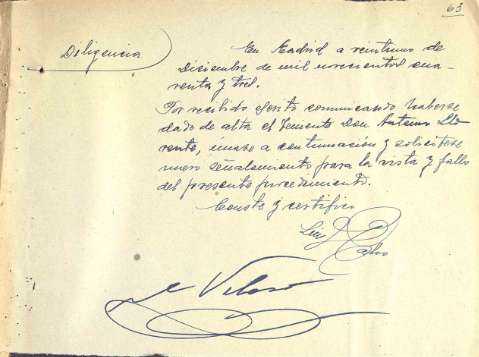 63
Diligencia
En Madrid a veintiuno de
Diciembre de mil novecientos cua-
renta y tres.
Por recibido escrito comunicando haberse
dado de alta el Teniente Don Antonio Llo-
rente, únase a continuación y solicítese
nuevo señalamiento para la vista y fallo
del presente procedimiento.
Consta y certifico